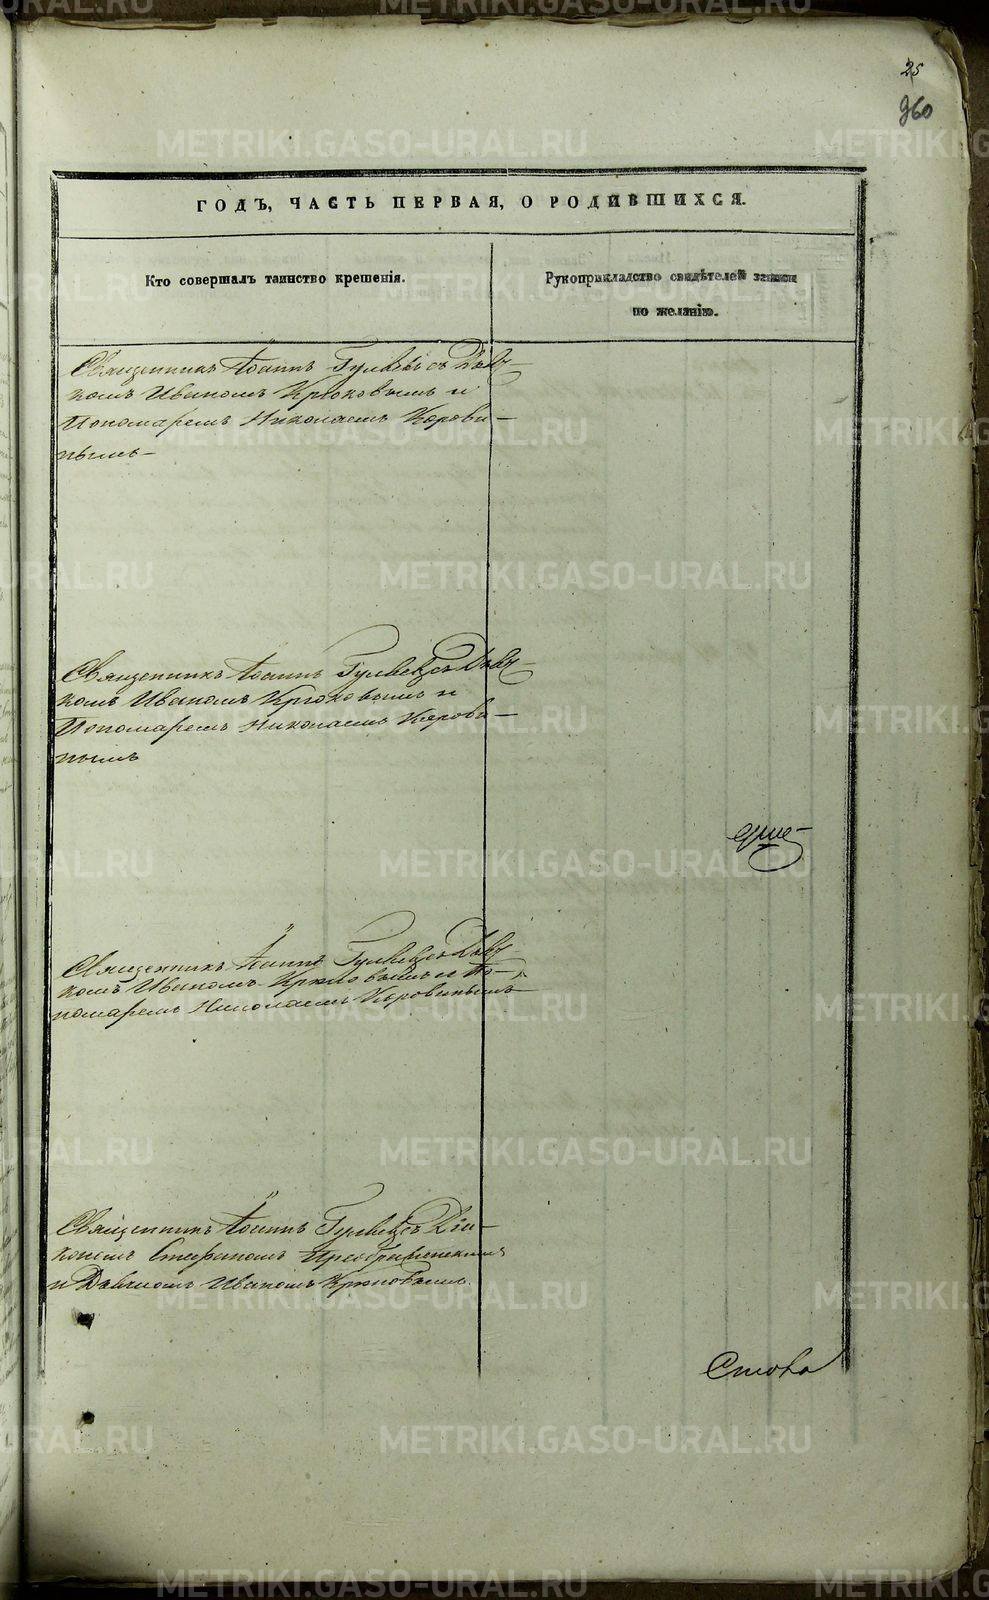 25
960
ГОДЪ, ЧАСТЬ ПЕРВАЯ, О РОДИВШИХСЯ.
Кто совершалъ таинство крещенія.
Рукоприкладство свидѣтелей записи
по желанію.
Священникъ Іоаннъ Гуляевъ съ Дьяч-
комъ Иваномъ Крюковымъ и
Пономаремъ Николаемъ Корови-
нымъ-
Священникъ Іоаннъ Гуляевъ съ Дьяч-
комъ Иваномъ Крюковымъ и
Пономаремъ Николаемъ Корови-
нымъ
Священникъ Іоаннъ Гуляевъ съ Дьяч-
комъ Иваномъ Крюковымъ и По-
номаремъ Николаемъ Коровинымъ
Священникъ Іоаннъ Гуляевъ съ Діа-
кономъ Стефаномъ Преображенскимъ
и Дьячкомъ Иваномъ Крюковымъ.
METRIKI.GASO-URAL.RU